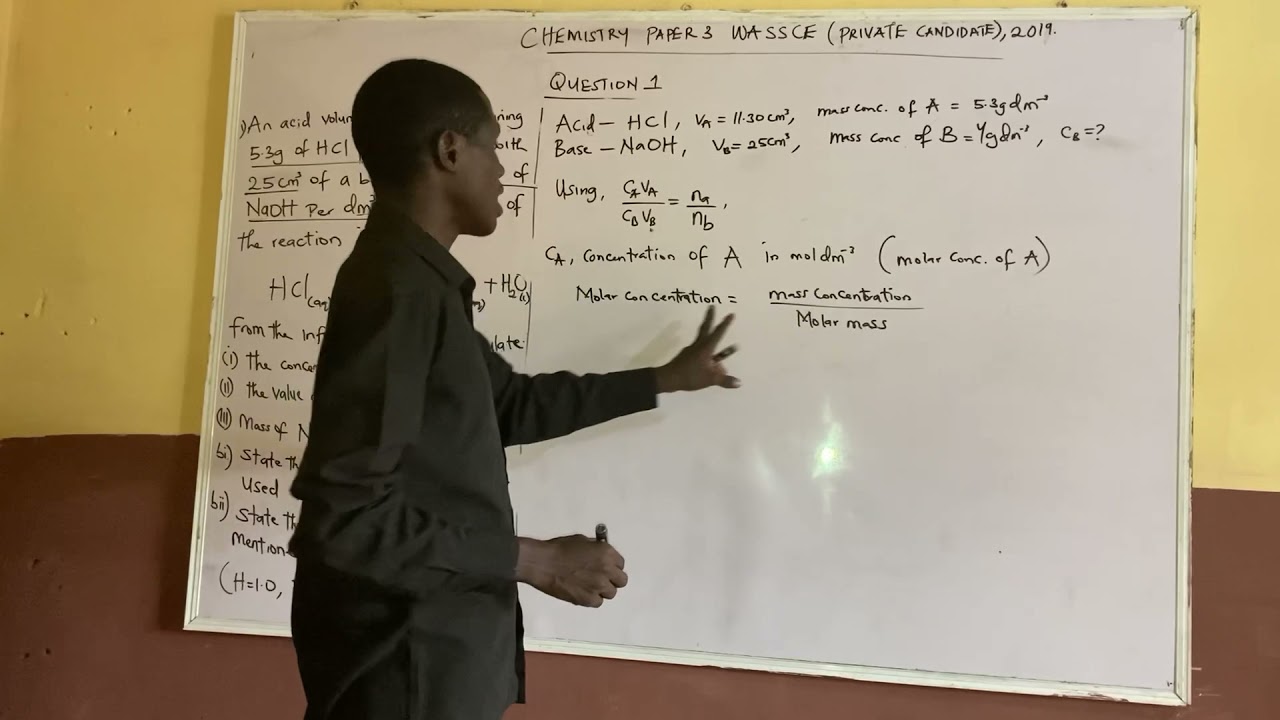 CHEMISTRY PAPER 3 WASSCE (PRIVATE CANDIDATE), 2019.
) An acid volum ring
5.3g of HCl with
25cm³ of a b of
NaOH Per dm³ of
the reaction
HCl(aq) + H₂O(l)
from the inf ulate:
(i) the conce
(ii) the value
(iii) Mass of N
bi) State th
Used
bii) State th
Mention
(H=1.0,
QUESTION 1
Acid – HCl, VA = 11.30cm³, mass conc. of A = 5.3gdm⁻³
Base – NaOH, VB = 25cm³, mass conc of B = Ygdm⁻³, CB = ?
Using, CAVA / CBVB = na / nb,
CA, Concentration of A in moldm⁻³ (molar conc. of A)
Molar concentration = mass concentration / Molar mass